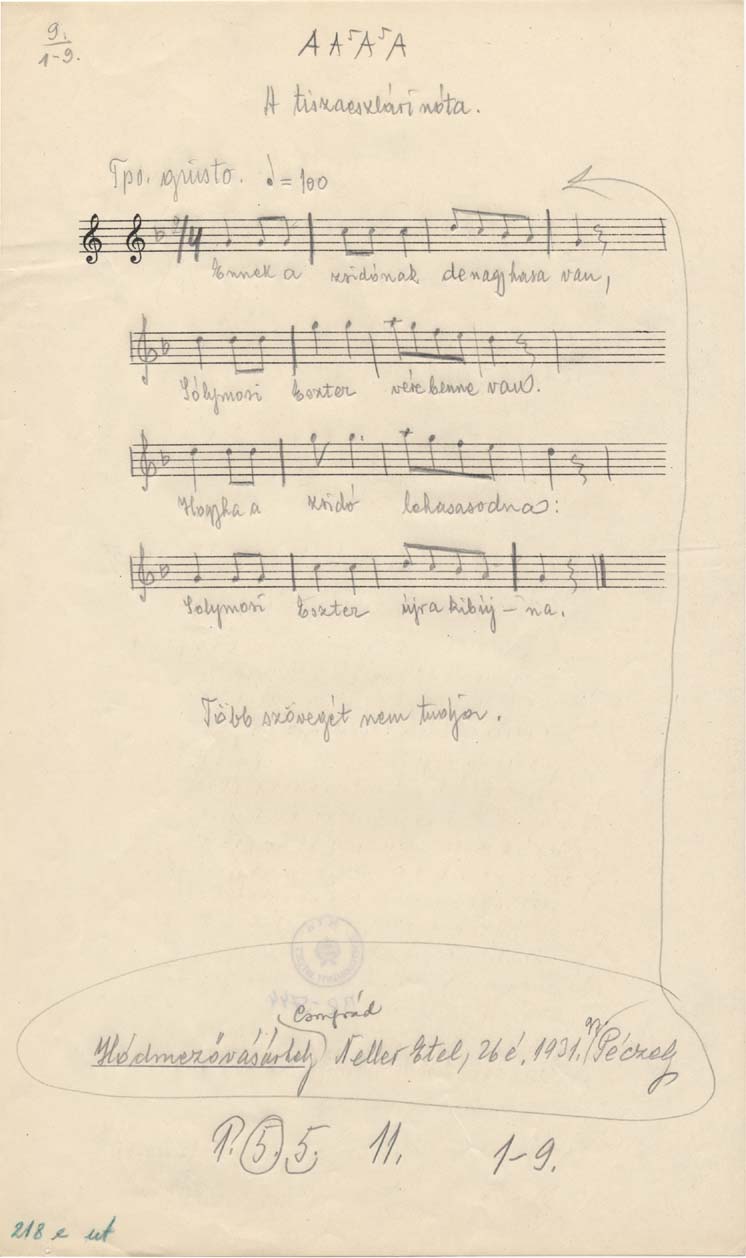 9.
1-9.
A A⁵A⁵A
A tiszaeszlári nóta.
Tpo. giusto. ♩ = 100
2/4
Ennek a zsidónak de nagy hasa van,
Sólymosi Eszter vére benne van.
Hogyha a zsidó lehasasodna:
Solymosi Eszter újra kibúj – na.
Több szövegét nem tudja.
Csongrád
Hódmezővásárhely Neller Etel, 26 é, 1931. Péczely
1. 5. 5. 11. 1-9.
218 e